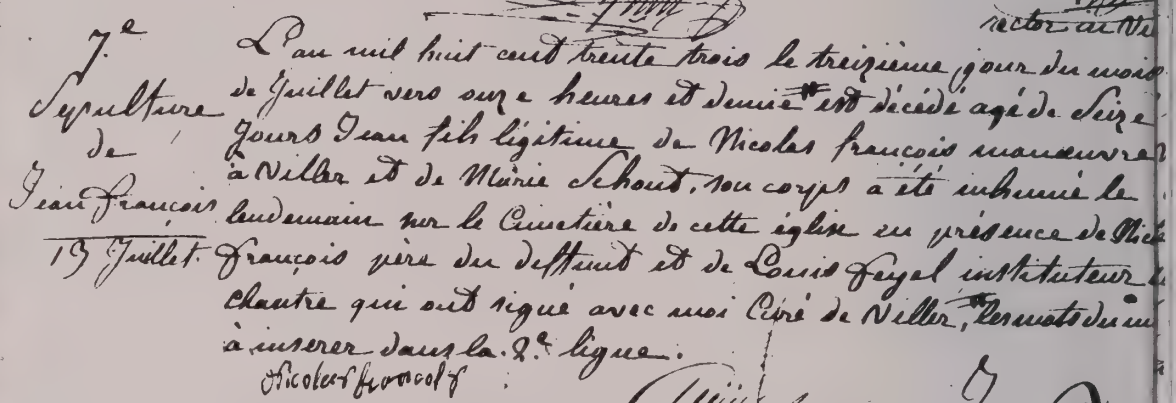 rector in Vi
7.e
Sepulture
de
Jean François
13 Juillet.
L'an mil huit cent trente trois le treizième jour du mois
de Juillet vers onze heures et demie # est décédé agé de Seize
jours Jean fils légitime de Nicolas françois manœuvre
à Viller et de Marie Schout, son corps a été inhumé le
lendemain sur le Cimetière de cette église en présence de Nic
françois père du deffunt et de Louis Feyel instituteur
chantre qui ont signé avec moi Curé de Viller, # les mots du m
à inserer dans la 2.e ligne.
Nicolas francois